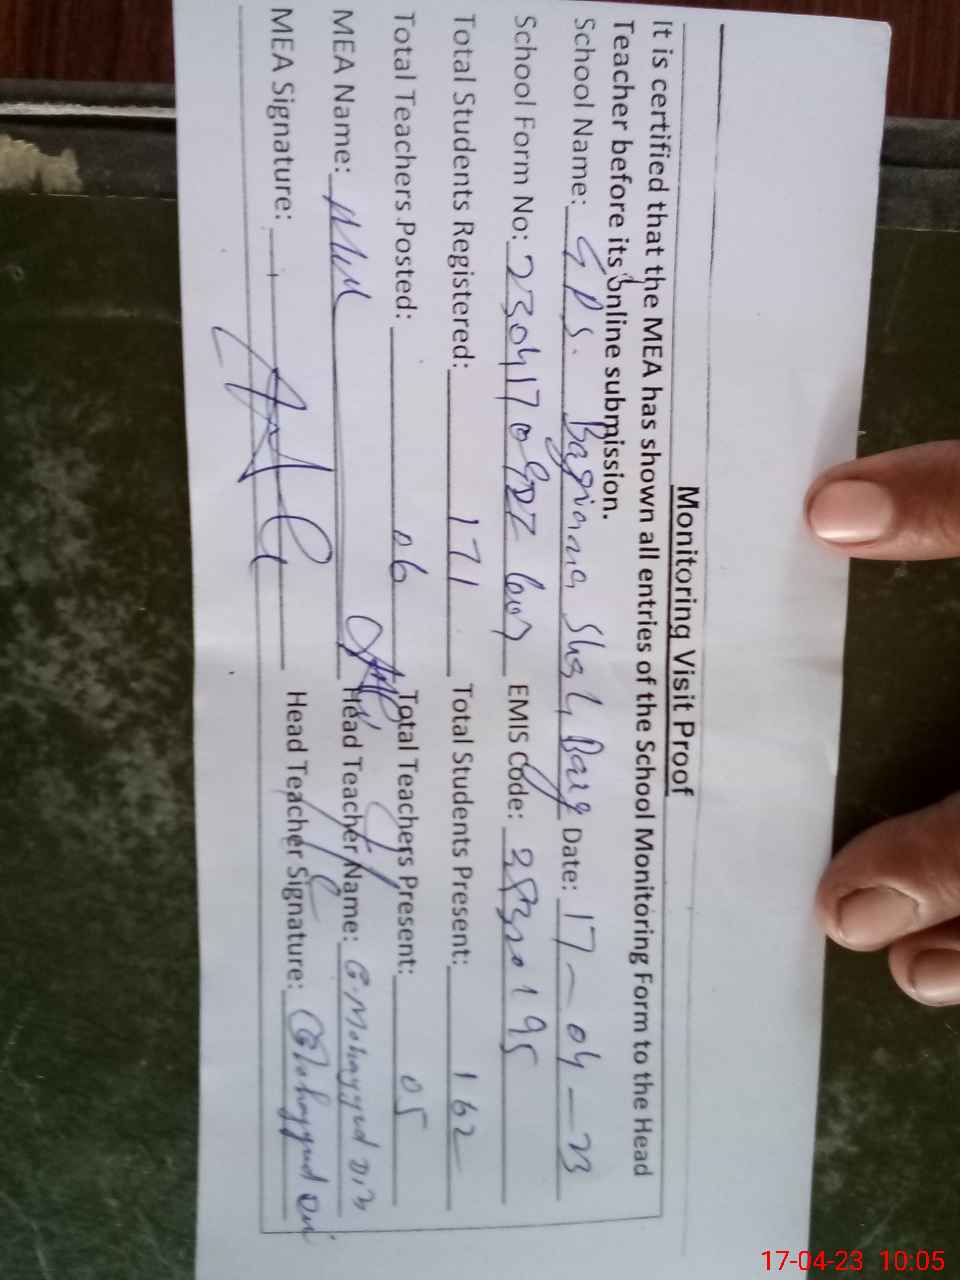 Monitoring Visit Proof
It is certified that the MEA has shown all entries of the School Monitoring Form to the Head
Teacher before its online submission.
School Name: GPS. Date: 17-04-23
School Form No: EMIS Code:
Total Students Registered: 171 Total Students Present: 162
Total Teachers Posted: 06 Total Teachers Present: 05
MEA Name: Head Teacher Name: G. Mohayyud Din
MEA Signature: Head Teacher Signature:
17-04-23 10:05